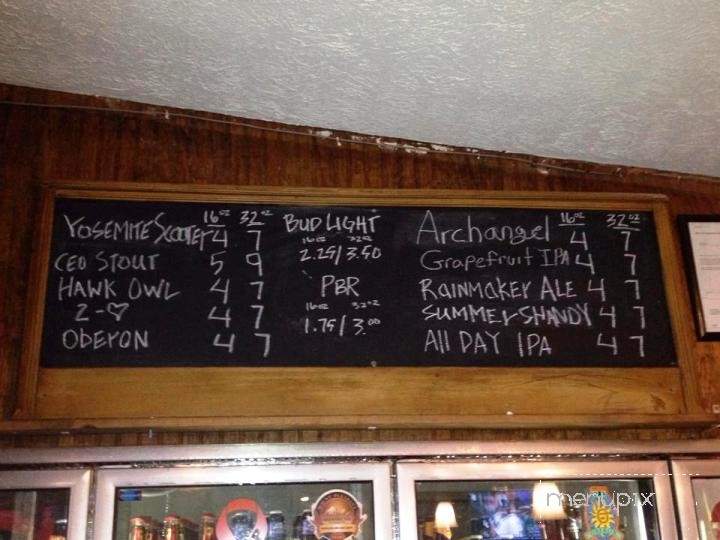 16oz 32oz
Yosemite Scooter 4 7
CEO STOUT 5 9
HAWK OWL 4 7
2-♡ 4 7
OBERON 4 7
BUD LIGHT
16oz 32oz
2.25/3.50
PBR
16oz 32oz
1.75/3.00
16oz 32oz
Archangel 4 7
Grapefruit IPA 4 7
RAINMAKER ALE 4 7
SUMMER SHANDY 4 7
All DAY IPA 4 7
menupix